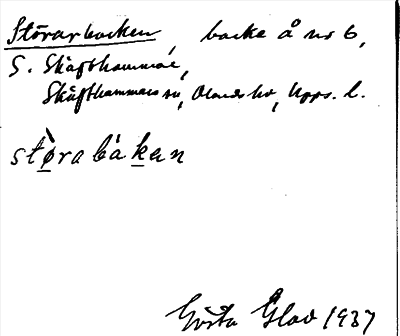 Störarbacken, backe å nr 6,
S. Skäfthammar,
Skäfthammars sn, Olands hd, Upps. l.
störabáken
Gösta Åland 1937